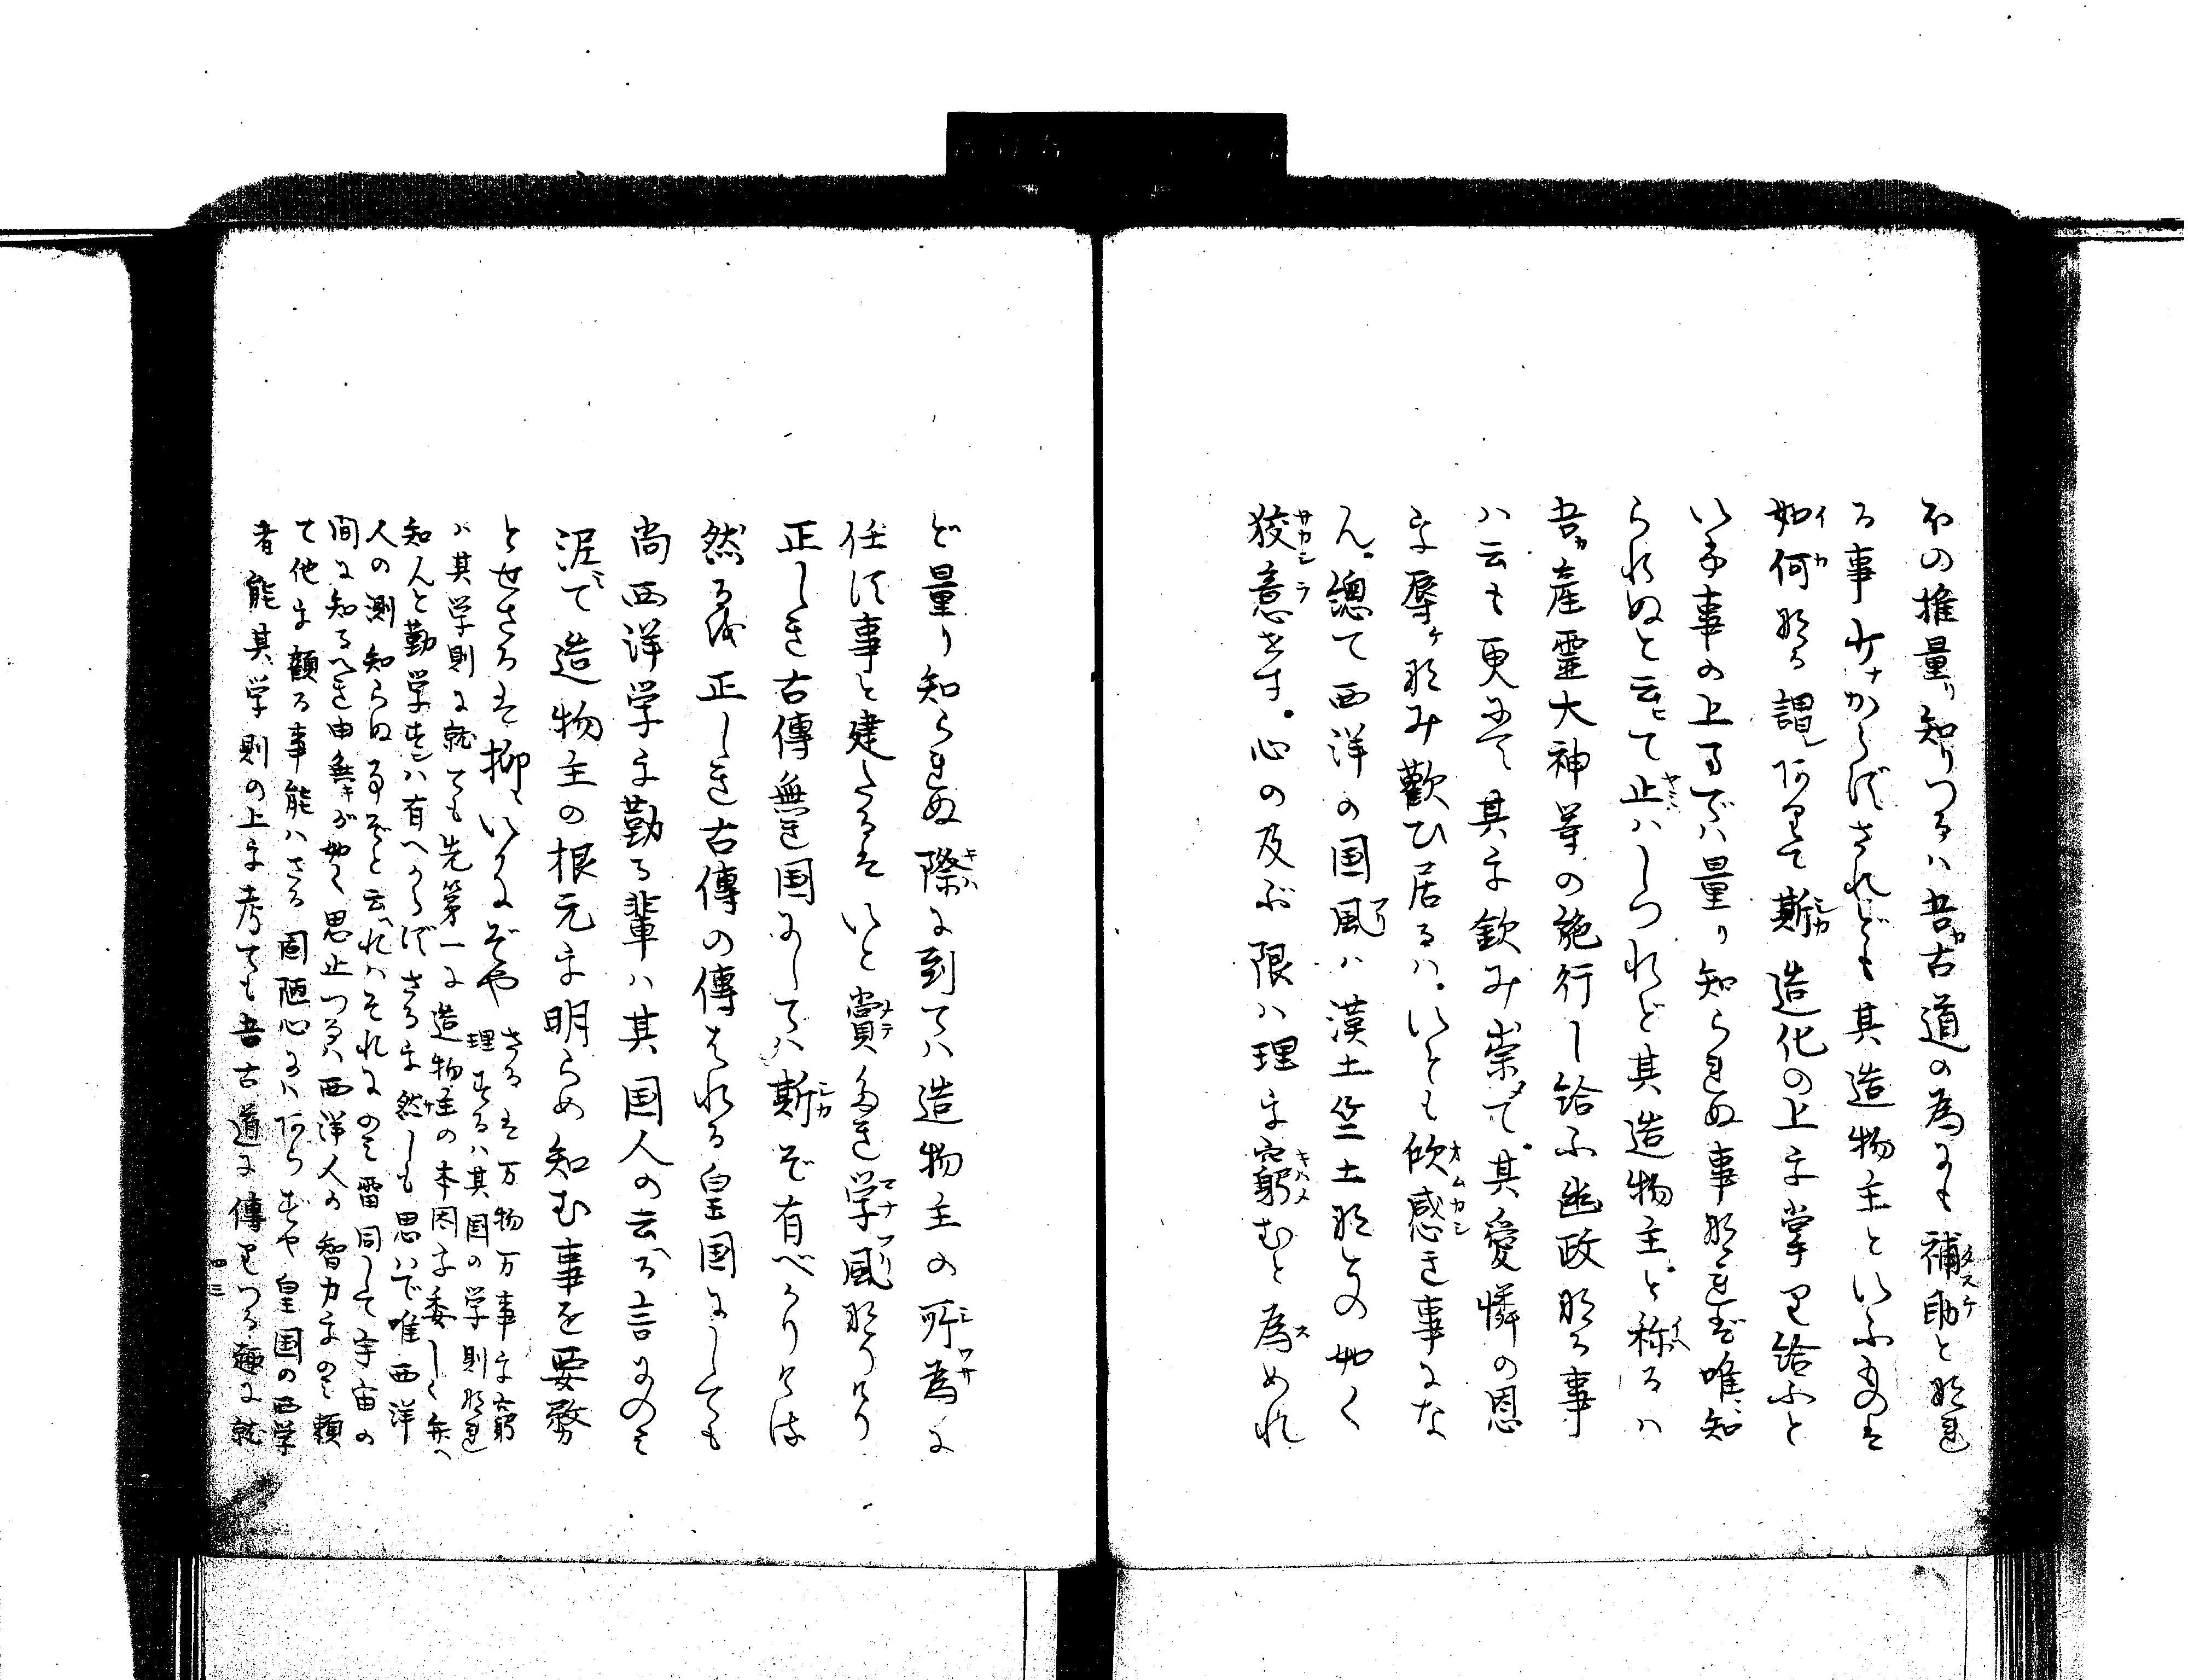 有の推量り知りつるハ吾が古道の為にも補助と那れ
る事少なからずされども其造物主といふものを
如何那る謂し阿りて斯造化の上を掌り給ふと
いふ事の上まではハ量り知られぬ事那れば唯に知
られぬと云て止ハしつれど其造物主と称るハ
吾が産霊大神等の施行し給ふ幽政那る事
ハ云も更にて其を欽み崇めて其愛憐の恩
を辱け那み歓ひ居るハ。いとも欣感き事にな
ん。總て西洋の国風ハ漢土竺土那どの如く
狡意せす。心の及ぶ限ハ理を窮むと為めれ
ど量り知られぬ際に到てハ造物主の所為に
任す事と建たるはいと賞多き学風那りけり
正しき古傳無き国にしてハ斯ぞ有べかりける
然るを正しき古傳の傳はれる皇国にしても
尚西洋学を勤る輩ハ其国人の云へる言にのみ
泥て造物主の根元を明らめ知む事を要務
とせさるは抑いかにぞや さるは万物万事を窮
理するハ其国の学則那れ
バ其学則に就ても先第一に造物主の本因を委しく弁へ
知んと勤学せずハ有へからずさるを然しも思いで唯西洋
人の測知らぬ事ぞと云へれハそれにのみ雷同して宇宙の
間に知るへき由無きが如く思止つるハ西洋人の智力をのみ頼
て他を顧る事能ハさる固陋心にハ阿らずや皇国の西学
者能其学則の上を考ても吾古道に傳りつる趣に就
四三